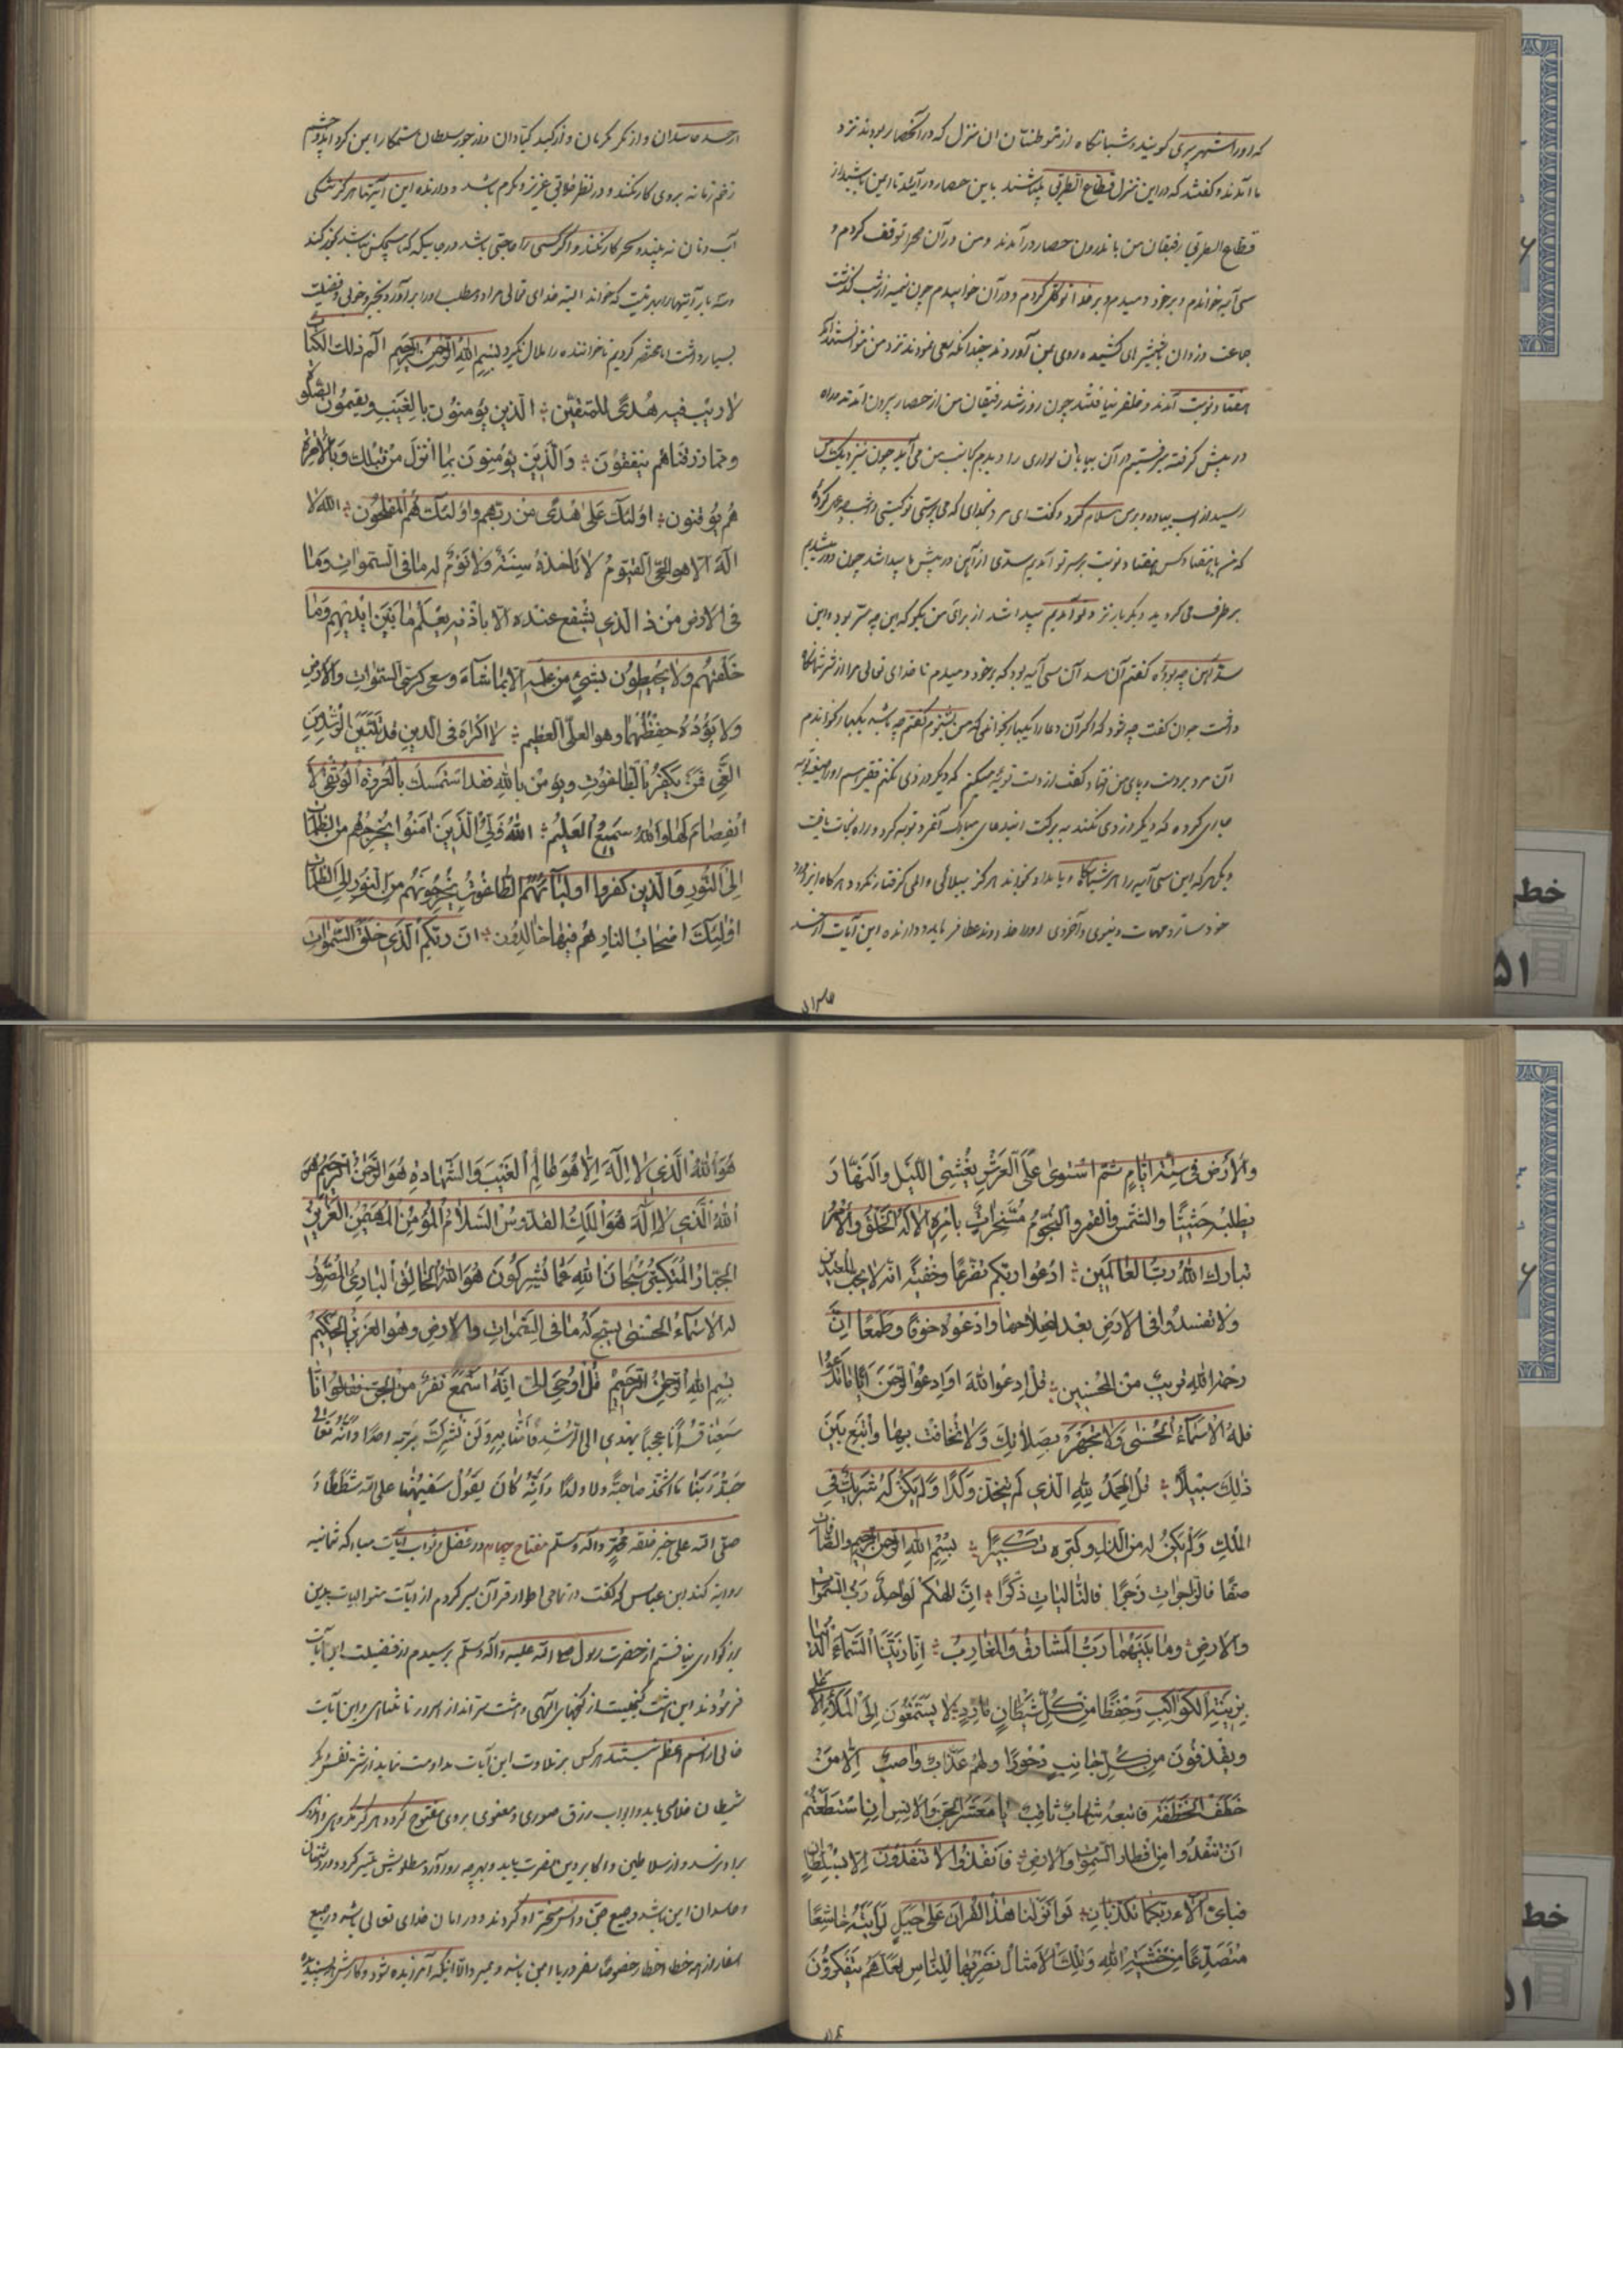 که اورا شهر پری کویند و شبانکاه از متوطنان ان منزل که در آنحصار بودند نزد
ما آمدند و کفتند که در این منزل قطاع الطریق باشند باین حصار در آئید تا ایمن باشید از
قطاع الطریق رفیقان من باندرون حصار در آمدند و من در آن صحرا توقف کردم و
سی آیه خواندم و بر خود دمیدم و بر خدا توکل کردم و در آن خوابیدم چون نیمه از شب کذشت
جماعت دزدان با شمشیرهای کشیده روی بمن آوردند چندانکه سعی نمودند نزد من نتوانستند آمد
هفتاد نوبت آمدند و ظفر نیافتند چون روز شد رفیقان من از حصار بیرون آمدند و راه
در پیش کرفته میرفتیم در آن بیابان سواری را دیدم که بجانب من می آید چون نزدیک من
رسید از اسب پیاده و بمن سلام کرد و کفت ای مرد بخدای که می پرستی تو کیستی و امشب چه عمل کردهٔ
که من با هفتاد کس هفتاد نوبت بر سر تو آمدیم سدی از آهن در پیش ما پیدا شد چون دور شدیم
بر طرف می کردید و دیکر بار نزد تو آمدیم پیدا شد از برای من بکو که این چه ستر بود و این
سد آهن چه بود کفتم آن سد آن سی آیه بود که بر خود دمیدم تا خدای تعالی مرا از شر شما نکاه
داشت جوان کفت چه شود که اکر آن دعا را یکبار بخوانی که من بشنوم کفتم چه باشد یکبار بخواندم
آن مرد بر دست و پای من افتاد و کفت از دست تو توبه میکنم که دیکر دزدی نکنم فقیر هم اورا صیغه توبه
جاری کرده که دیکر دزدی نکند به برکت این دعای مبارک آنمرد توبه کرد و راه نجات یافت
و یکی هر که این سی آیه را هر شبانکاه و بامداد بخواند هرکز ببلائی و المی کرفتار نکردد و هر کاه این ورد
خود سازد مهمات دنیوی و آخروی اورا خداوند عطا فرماید و دارنده این آیات از حسد
حاسدان
از حسد حاسدان و از مکر مکریان و از کید کیّادان و از جور سلطان ستمکار ایمن کردد و چشم
زخم زمانه بروی کار نکند و در نظر خلایق عزیز و مکرم باشد و دارنده این آیتها هرکز تنکی
آب و نان نه بیند و سحر کار نکند و اکر کسی را حاجتی باشد در جائیکه که کس ممکن نباشد کوزه کند
و سه بار آیتهارا بهر نیت که خواند البته خدای تعالی مراد و مطلب اورا برآورد و بخیر و خوبی و فضیلت
بسیار داشت اما مختصر کردیم تا خواننده را ملال نکیرد بسم الله الرحمن الرحیم الم ذلك الکتاب
لا ریب فیه هدی للمتقین الذین یؤمنون بالغیب ویقیمون الصلوة
ومما رزقناهم ینفقون والذین یؤمنون بما انزل من قبلك وبالاخرة
هم یوقنون اولئك علی هدی من ربهم واولئك هم المفلحون الله لا
اله الا هو الحی القیوم لا تاخذه سنة ولا نوم له ما فی السموات وما
فی الارض من ذا الذی یشفع عنده الا باذنه یعلم ما بین ایدیهم وما
خلفهم ولا یحیطون بشئ من علمه الا بما شاء وسع کرسی السموات والارض
ولا یؤده حفظهما وهو العلی العظیم لا اکراه فی الدین قد تبین الرشد من
الغی فمن یکفر بالطاغوت ویؤمن بالله فقد استمسك بالعروة الوثقی لا
انفصام لها والله سمیع العلیم الله ولی الذین امنوا یخرجهم من الظلمات
الی النور والذین کفروا اولیائهم الطاغوت یخرجونهم من النور الی الظلمات
اولئك اصحاب النار هم فیها خالدون ان ربکم الذی خلق السموات
والارض فی ستة ایام ثم استوی علی العرش یغشی اللیل والنهار
یطلبه حثیثا والشمس والقمر والنجوم مسخرات بامره الا له الخلق والامر
تبارك الله رب العالمین ادعوا ربکم تضرعا وخفیة انه لا یحب المعتدین
ولا تفسدوا فی الارض بعد اصلاحها وادعوه خوفا وطمعا ان
رحمة الله قریب من المحسنین قل ادعوا الله او ادعوا الرحمن ایا ما تدعوا
فله الاسماء الحسنی ولا تجهر بصلاتك ولا تخافت بها وابتغ بین
ذلك سبیلا قل الحمد لله الذی لم یتخذ ولدا ولم یکن له شریك فی
الملك ولم یکن له من الذل وکبره تکبیرا بسم الله الرحمن الرحیم والصافات
صفا فالزاجرات زجرا فالتالیات ذکرا ان الهکم لواحد رب السموات
والارض وما بینهما رب المشارق والمغارب انا زینا السماء الدنیا
بزینة الکواکب وحفظا من کل شیطان مارد لا یستمعون الی الملاء الاعلی
ویقذفون من کل جانب دحورا ولهم عذاب واصب الا من
خطف الخطفة فاتبعه شهاب ثاقب یا معشر الجن والانس ان استطعتم
ان تنفذوا من اقطار السموات والارض فانفذوا لا تنفذون الا بسلطان
فبای الاء ربکما تکذبان لو انزلنا هذا القران علی جبل لرایته خاشعا
متصدعا من خشیة الله وتلك الامثال نضربها للناس لعلهم یتفکرون
هو الله الذی لا اله الا هو عالم الغیب والشهادة هو الرحمن الرحیم هو
الله الذی لا اله هو الملك القدوس السلام المؤمن المهیمن العزیز
الجبار المتکبر سبحان الله عما یشرکون هو الله الخالق الباری المصور
له الاسماء الحسنی یسبح له ما فی السموات والارض وهو العزیز الحکیم
بسم الله الرحمن الرحیم قل اوحی الی انه استمع نفر من الجن فقالوا انا
سمعنا قرانا عجبا یهدی الی الرشد فامنا به ولن نشرك بربنا احدا وانه تعالی
جد ربنا ما اتخذ صاحبة ولا ولدا وانه کان یقول سفیهنا علی الله شططا و
صلی الله علی خیر خلقه محمد واله وسلم مفتاح چهارم در فضل ثواب آیات مبارکه ثمانیه
روایة کند ابن عباس که کفت در تمامی اطوار قرآن سیر کردم از آیات متوالیات بدین
بزرکواری نیافتم از حضرت رسول صلی الله علیه واله وسلم پرسیدم از فضیلت این آیات
فرمودند این هشت کنجیست از کنجهای الهی و هشت ستر اند از اسرار نامتناهی و این آیات
خالی از اسم اعظم نیستند هر کس بر تلاوت این آیات مداومت نماید از شر نفس و مکر
شیطان خلاصی یابد و ابواب رزق صوری و معنوی بروی مفتوح کردد و هرکز مکروهی و اندوه
باو نرسد و از سلاطین و اکابر دین مضرت نیابد و بهر چه رو آورد مطلوبش میسر کردد و در دشمنان
و حاسدان ایمن باشد و جمیع جن و انس مسخر او کردند و در امان خدای تعالی باشد و در جمیع
اسفار از همه خطا اخطار خصوصا سفر دریا ایمن باشد و نمیرد الا اینکه آمرزیده شود و کارش پسندیده
خطی
۵۱
خطی
۵۱